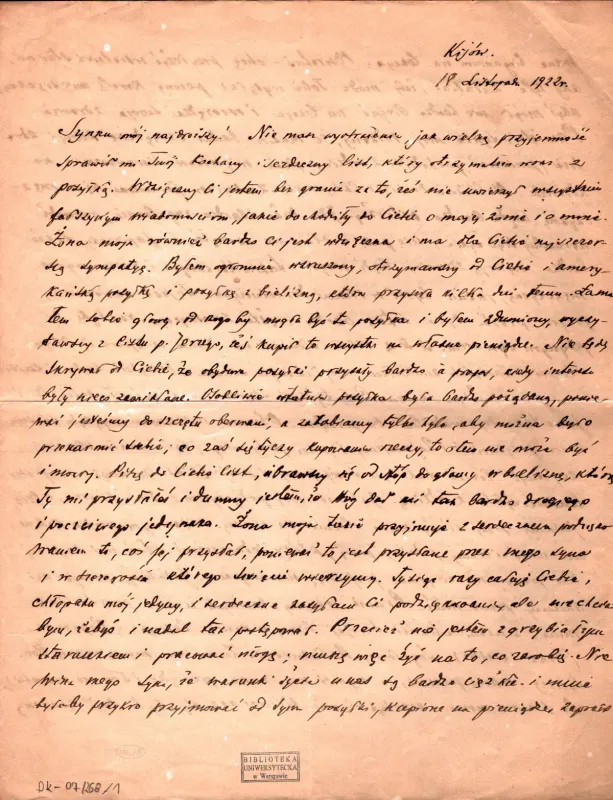 Kijów.
18 Listopada 1922 r.
Synku mój najdroższy! Nie masz wyobrażenia, jak wielką przyjemność
sprawił mi Twój kochany i serdeczny list, który otrzymałem wraz z
posyłką. Wdzięczny Ci jestem bez granic za to, żeś nie uwierzył wszystkim
fałszywym wiadomościom, jakie dochodziły do Ciebie o mojej żonie i o mnie.
Żona moja również bardzo Ci jest wdzięczna i ma dla Ciebie najszczer-
szą sympatyę. Byłem ogromnie wzruszony, otrzymawszy od Ciebie i amery-
kańską posyłkę i posyłkę z bielizną, która przyszła kilka dni temu. Łama-
łem sobie głowę, od kogo by mogła być ta posyłka i byłem zdumiony, wyczy-
tawszy z listu p. Jerzego, żeś kupił to wszystko za własne pieniądze. Nie będę
skrywał od Ciebie, że obydwie posyłki przyszły bardzo à propos, kiedy interesa
były nieco zawikłane. Osobliwie ostatnia posyłka była bardzo pożądaną, ponie-
waż jesteśmy do szczętu oberwani, a zarabiamy tylko tyle, aby można było
przekarmić siebie; co zaś się tyczy kupowania rzeczy, to o tem nie może być
i mowy. Piszę do Ciebie list, ubrawszy się od stóp do głowy w bieliznę, którą
Ty mi przysłałeś i dumny jestem, że Bóg dał mi tak bardzo drogiego
i poczciwego jedynaka. Żona moja także przyjmuje z serdecznem podzięko-
waniem to, coś jej przysłał, ponieważ to jest przysłane przez mego syna
i w szczerość którego święcie wierzymy. Tysiące razy całuję Ciebie,
chłopaku mój jedyny, i serdeczne zasyłam Ci podziękowanie, ale nie chciał-
bym, żebyś i nadal tak postępował. Przecież nie jestem zgrzybiałym
staruszkiem i pracować mogę; muszę więc żyć na to, co zarobię. Nie
wina mego syna, że warunki życia u nas są bardzo ciężkie i mnie
byłoby przykro przyjmować od syna posyłki, kupione na pieniądze, zapraco
BIBLIOTEKA
UNIWERSYTECKA
w Warszawie
Dk-07/268/1